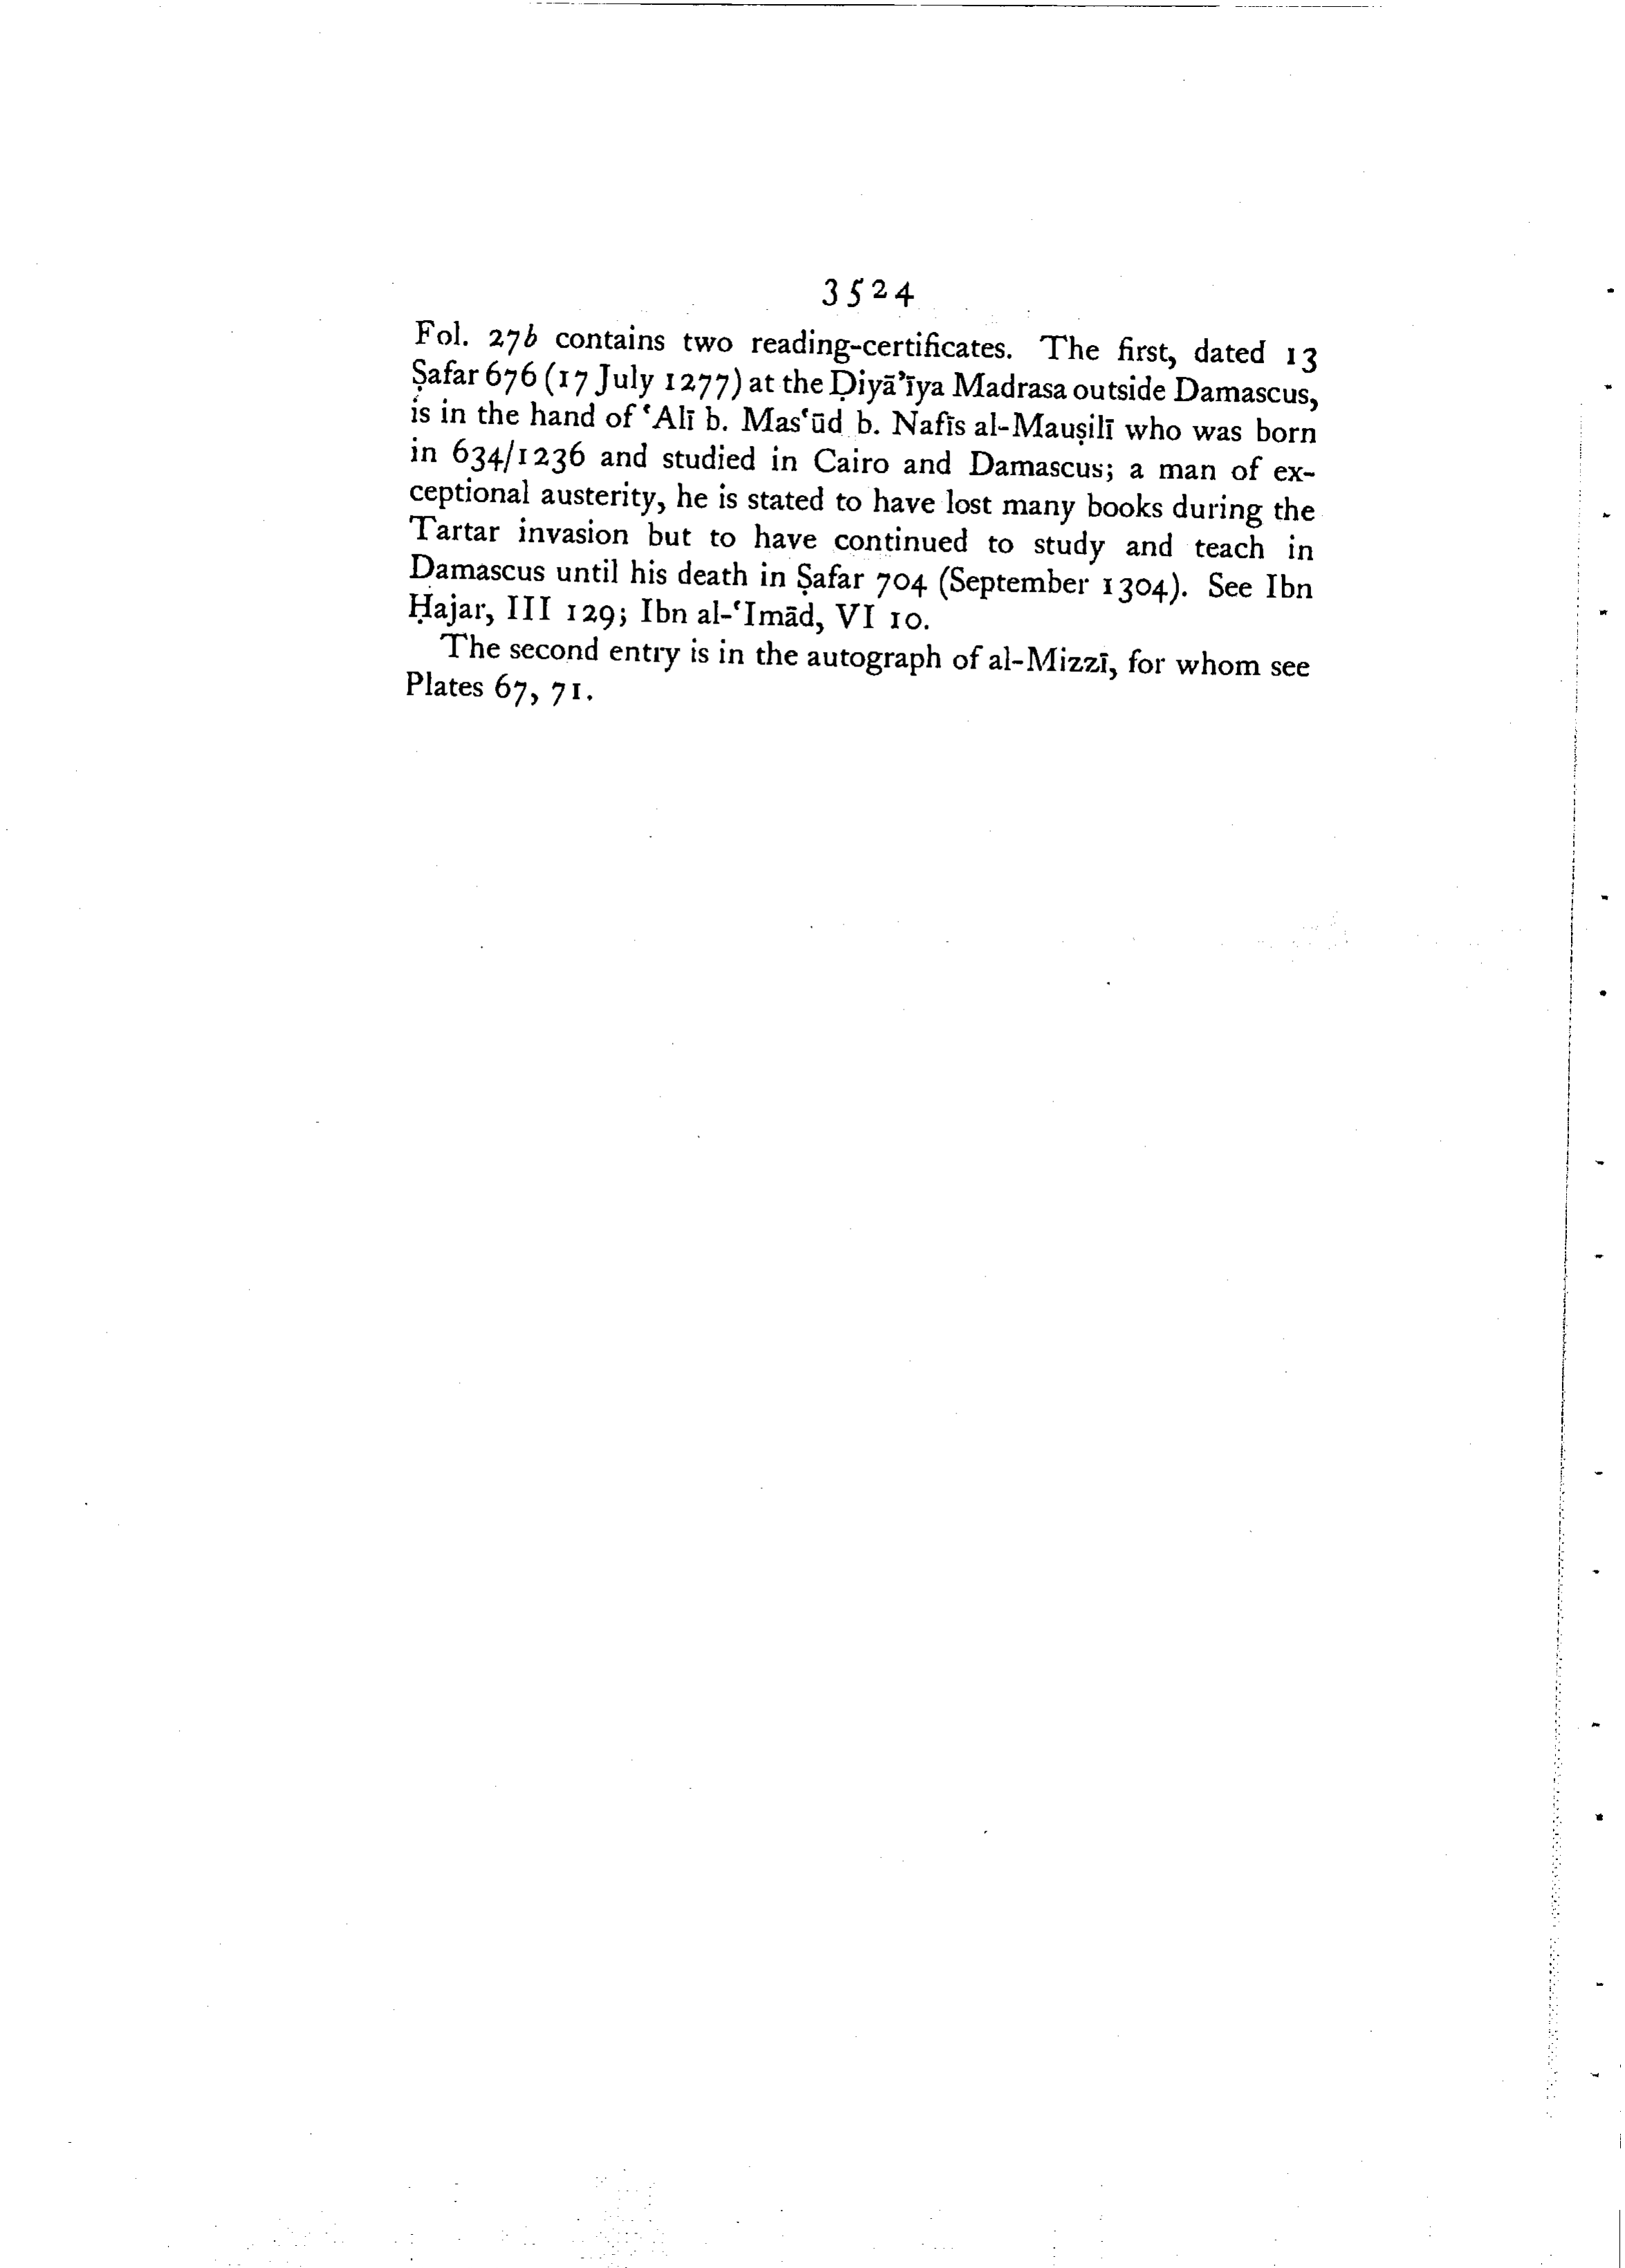 3524
Fol. 27b contains two reading-certificates. The first, dated 13
Ṣafar 676 (17 July 1277) at the Ḍiyā’īya Madrasa outside Damascus,
is in the hand of ‘Alī b. Mas‘ūd b. Nafīs al-Mauṣilī who was born
in 634/1236 and studied in Cairo and Damascus; a man of ex-
ceptional austerity, he is stated to have lost many books during the
Tartar invasion but to have continued to study and teach in
Damascus until his death in Ṣafar 704 (September 1304). See Ibn
Ḥajar, III 129; Ibn al-‘Imād, VI 10.
The second entry is in the autograph of al-Mizzī, for whom see
Plates 67, 71.